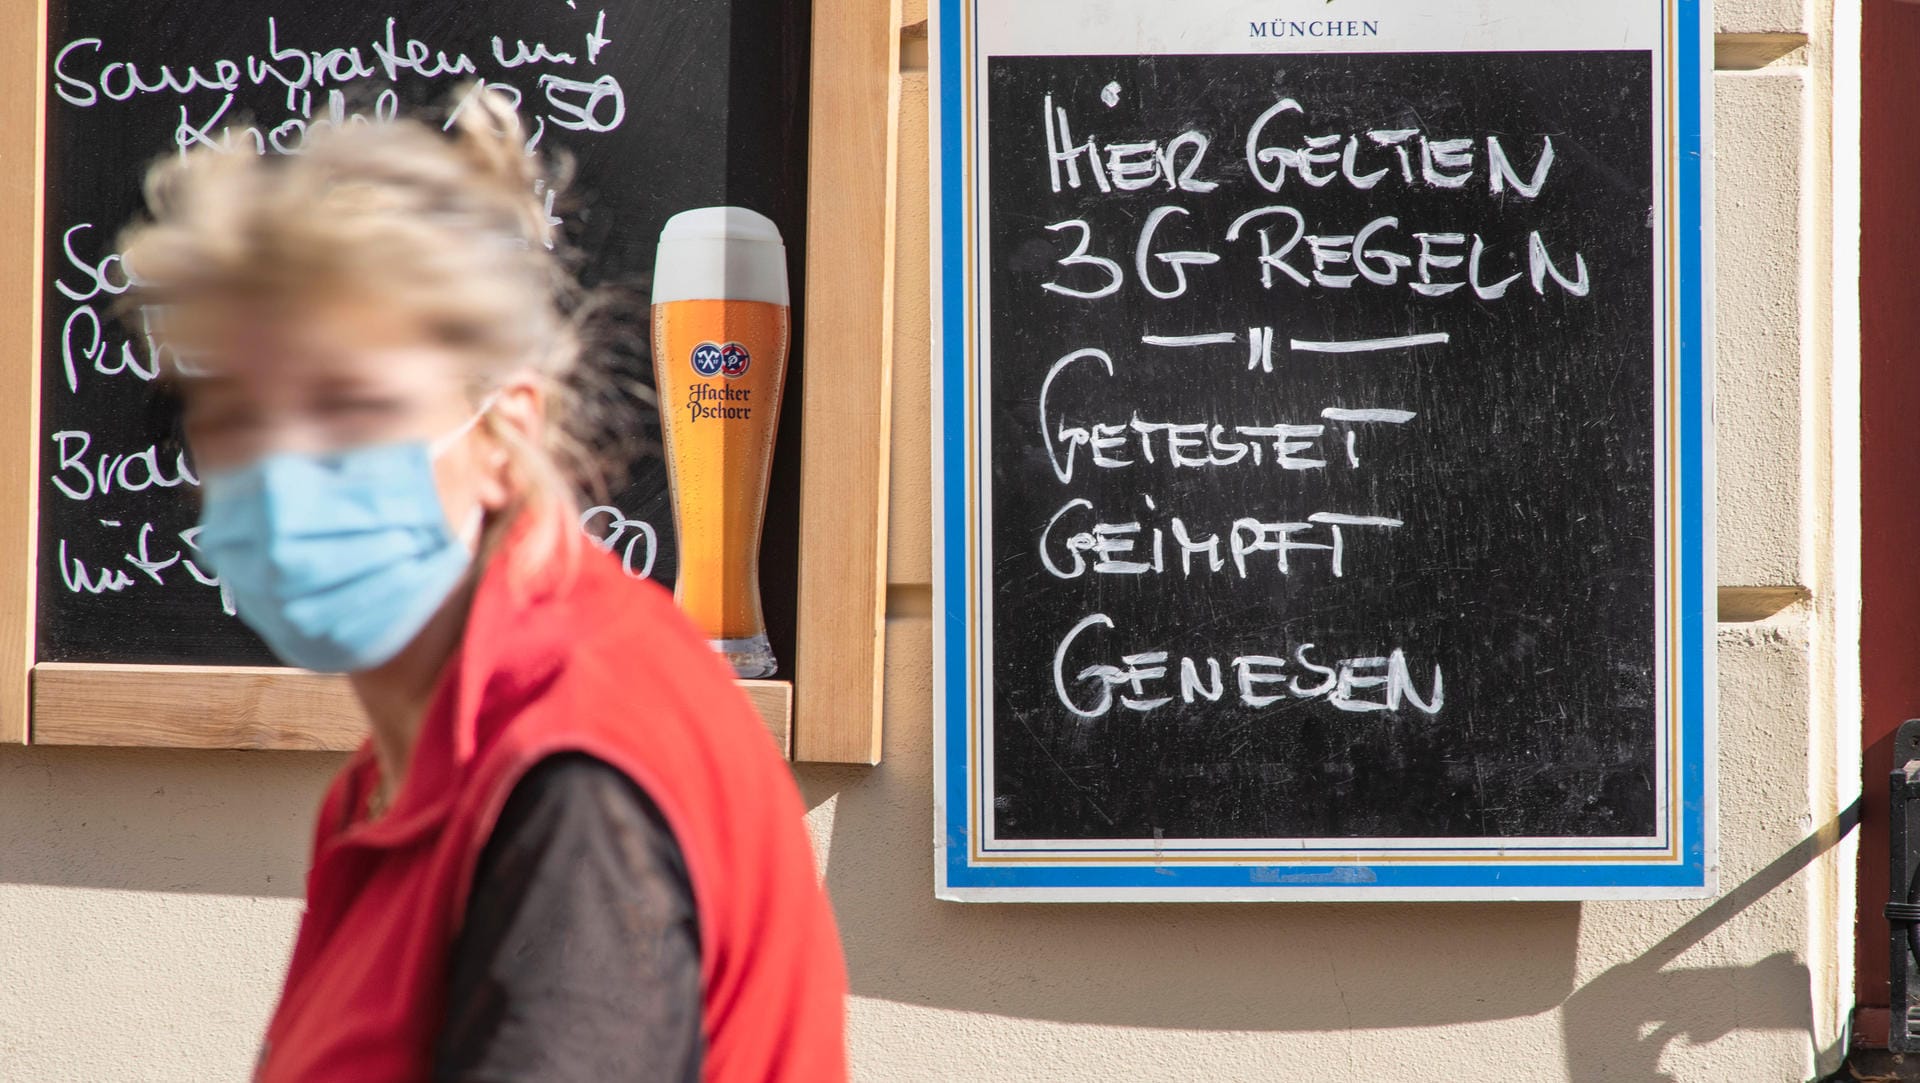 Sauerbraten mit
Knödel 13,50
Brau
mit
90
Hacker
Pschorr
MÜNCHEN
HiER GELTEN
3G REGELN
— " —
GETESTET
GEiMPFT
GENESEN